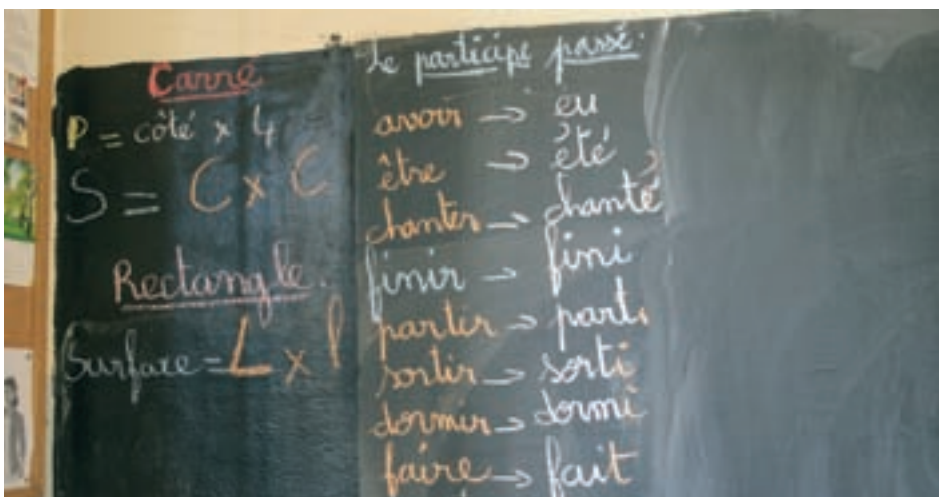 Carré
P = côté x 4
S = C x C
Rectangle.
Surface = L x l
Le participe passé.
avoir → eu
être → été
chanter → chanté
finir → fini
partir → parti
sortir → sorti
dormir → dormi
faire → fait